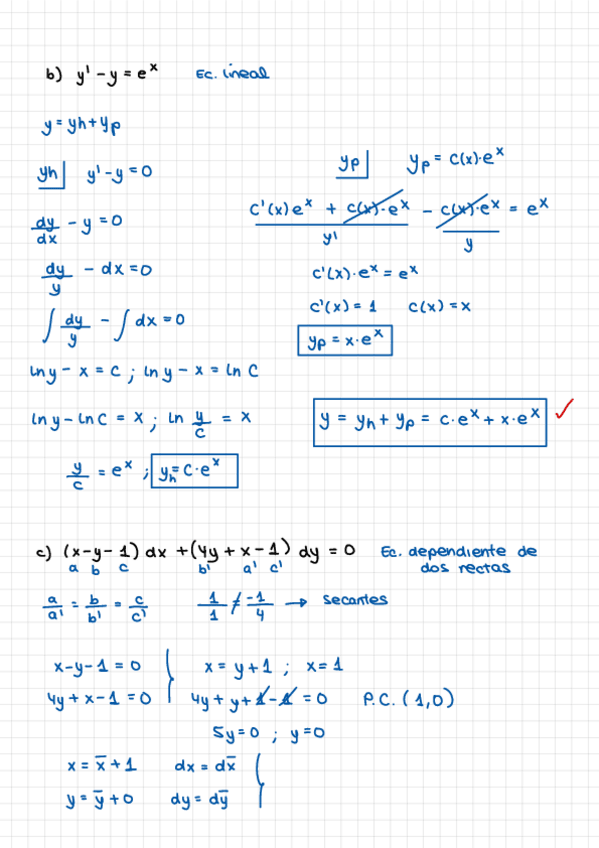 b) y' - y = e^x   Ec. lineal
y = yh + yp
yh| y' - y = 0
dy/dx - y = 0
dy/y - dx = 0
∫ dy/y - ∫ dx = 0
ln y - x = C ; ln y - x = ln C
ln y - ln C = x ; ln y/c = x
y/c = e^x ; yh = C·e^x
yp|   yp = C(x)·e^x
C'(x)e^x + c(x)·e^x - c(x)·e^x = e^x
y'   y
C'(x)·e^x = e^x
C'(x) = 1   C(x) = x
yp = x·e^x
y = yh + yp = c·e^x + x·e^x ✓
c) (x-y-1) dx + (4y + x - 1) dy = 0   Ec. dependiente de
a b c   b' a' c'   dos rectas
a/a' = b/b' = c/c'   1/1 ≠ -1/4 → secantes
x - y - 1 = 0   x = y + 1 ; x = 1
4y + x - 1 = 0   4y + y + 1 - 1 = 0   P.C. (1,0)
5y = 0 ; y = 0
x = x̄ + 1   dx = dx̄
y = ȳ + 0   dy = dȳ